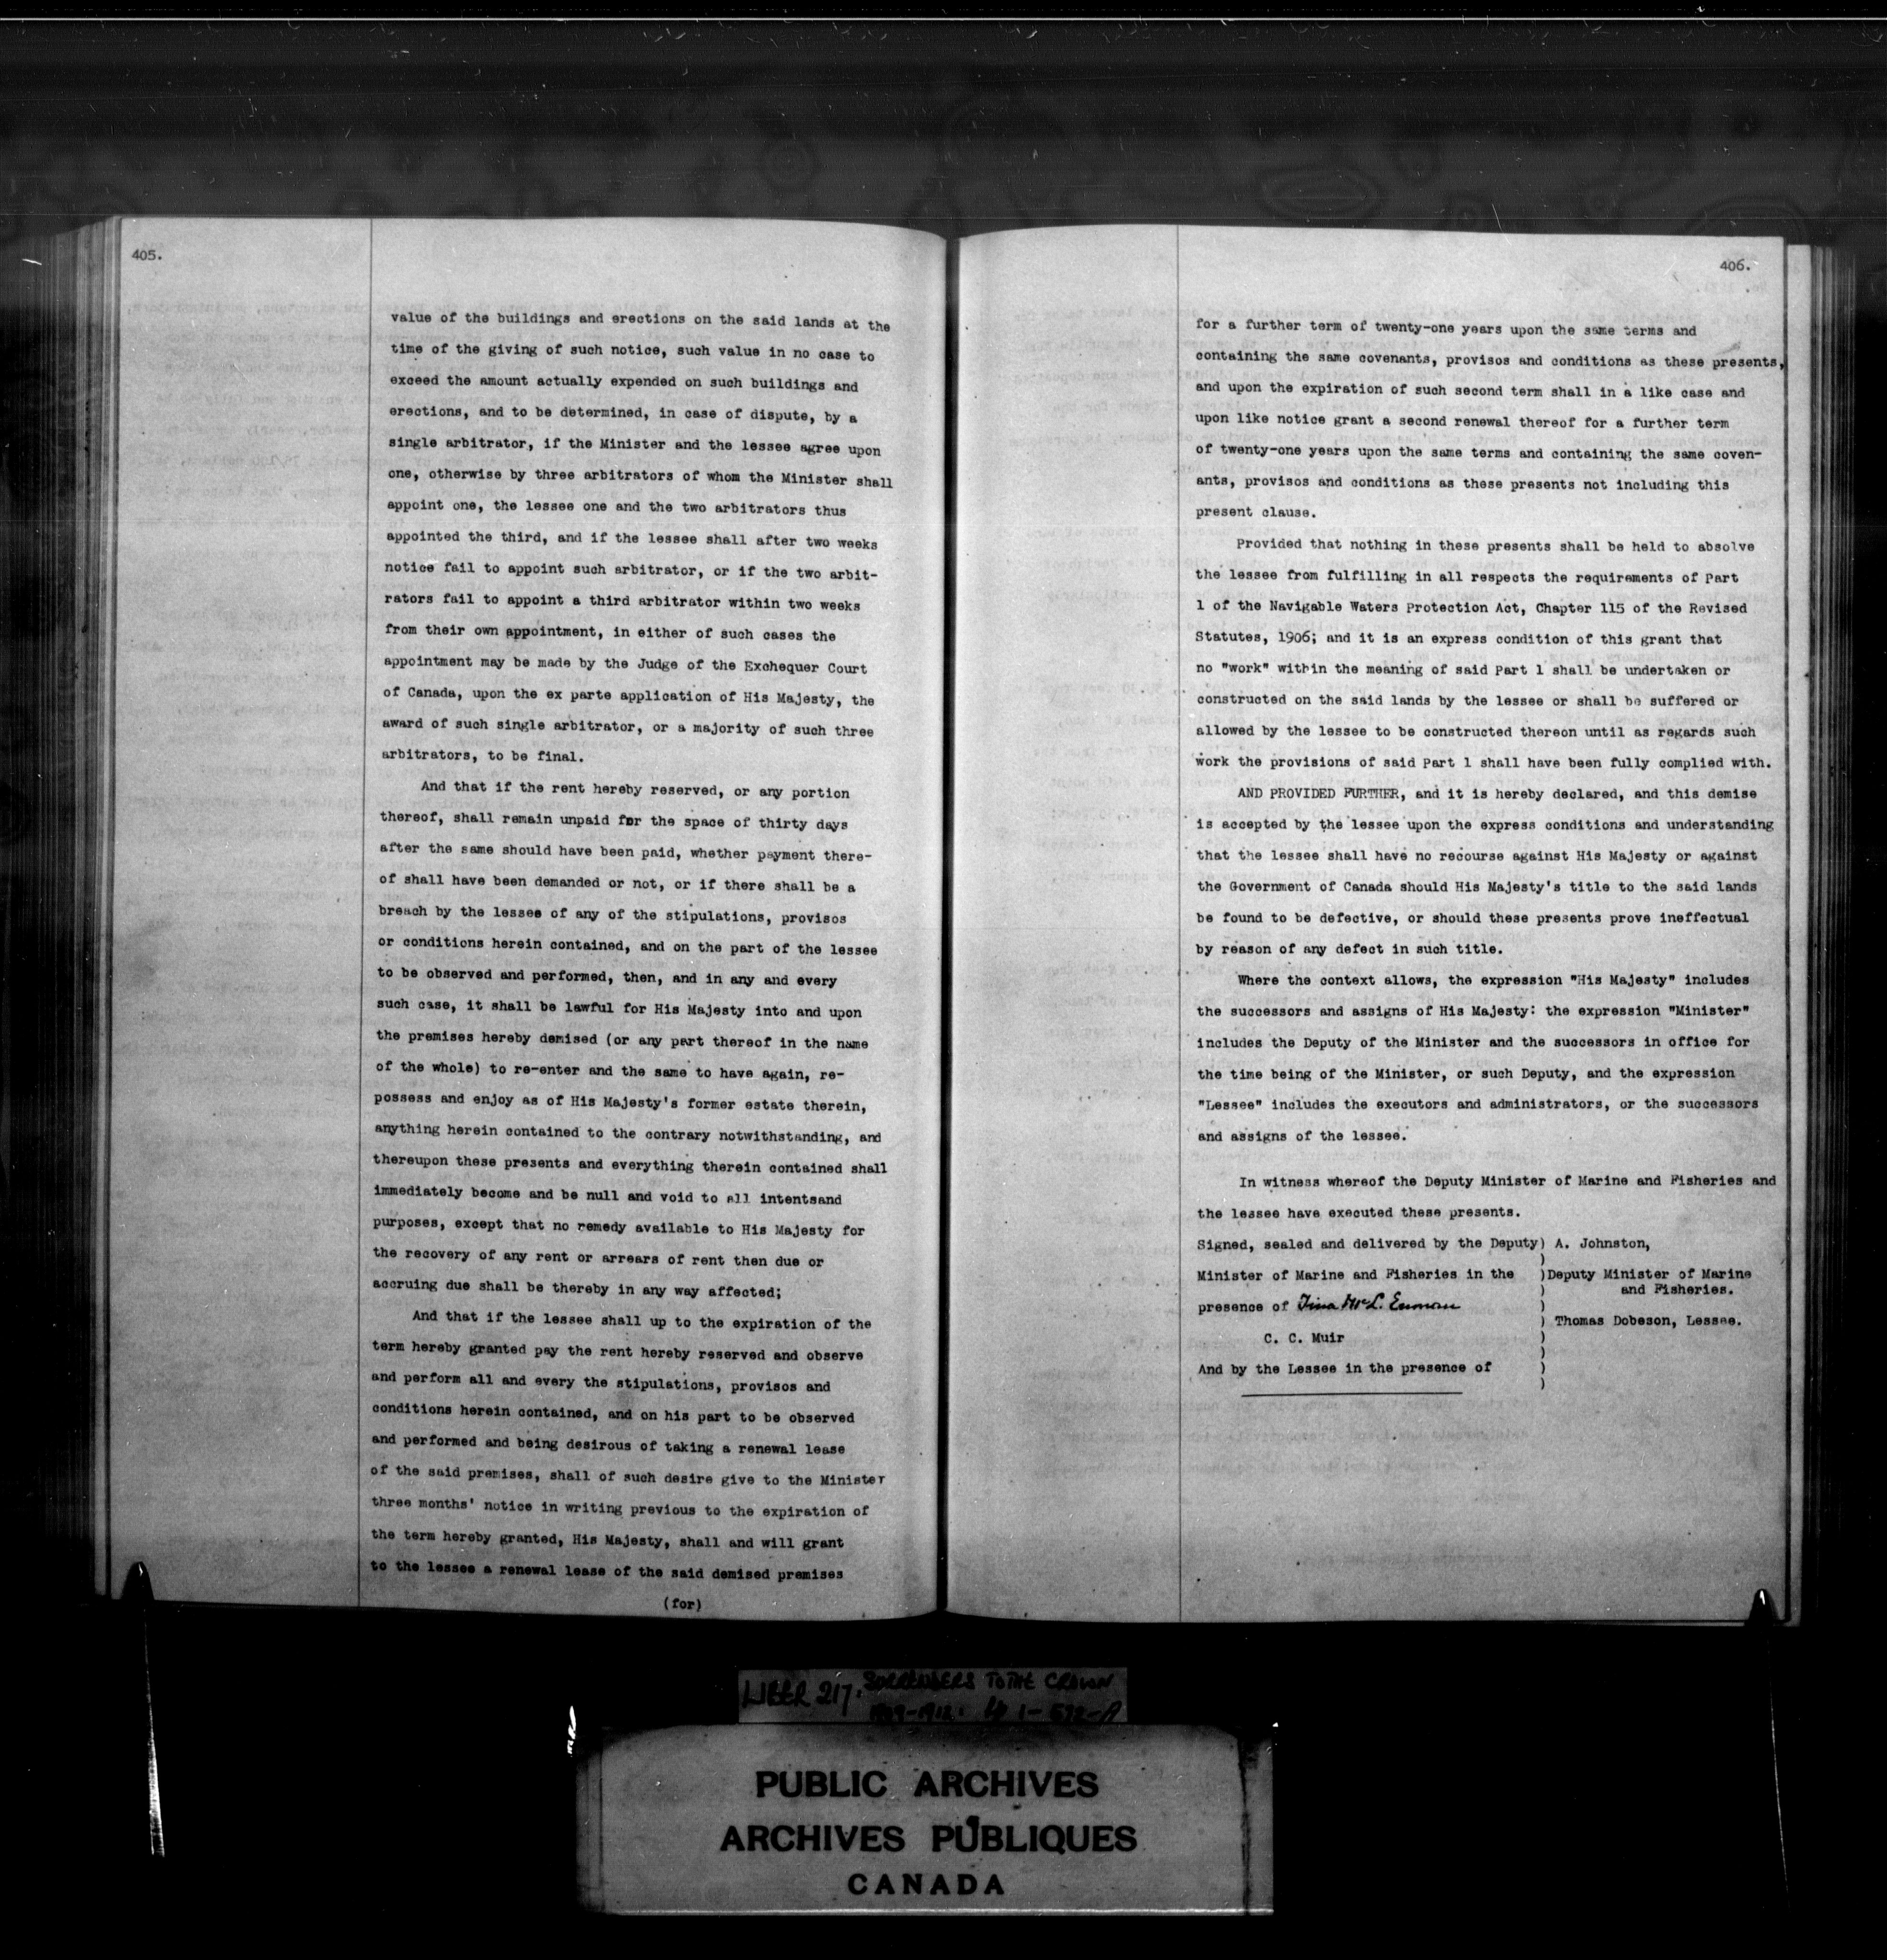 405.
value of the buildings and erections on the said lands at the
time of the giving of such notice, such value in no case to
exceed the amount actually expended on such buildings and
erections, and to be determined, in case of dispute, by a
single arbitrator, if the Minister and the lessee agree upon
one, otherwise by three arbitrators of whom the Minister shall
appoint one, the lessee one and the two arbitrators thus
appointed the third, and if the lessee shall after two weeks
notice fail to appoint such arbitrator, or if the two arbit-
rators fail to appoint a third arbitrator within two weeks
from their own appointment, in either of such cases the
appointment may be made by the Judge of the Exchequer Court
of Canada, upon the ex parte application of His Majesty, the
award of such single arbitrator, or a majority of such three
arbitrators, to be final.
And that if the rent hereby reserved, or any portion
thereof, shall remain unpaid for the space of thirty days
after the same should have been paid, whether payment there-
of shall have been demanded or not, or if there shall be a
breach by the lessee of any of the stipulations, provisos
or conditions herein contained, and on the part of the lessee
to be observed and performed, then, and in any and every
such case, it shall be lawful for His Majesty into and upon
the premises hereby demised (or any part thereof in the name
of the whole) to re-enter and the same to have again, re-
possess and enjoy as of His Majesty's former estate therein,
anything herein contained to the contrary notwithstanding, and
thereupon these presents and everything therein contained shall
immediately become and be null and void to all intentsand
purposes, except that no remedy available to His Majesty for
the recovery of any rent or arrears of rent then due or
accruing due shall be thereby in any way affected;
And that if the lessee shall up to the expiration of the
term hereby granted pay the rent hereby reserved and observe
and perform all and every the stipulations, provisos and
conditions herein contained, and on his part to be observed
and performed and being desirous of taking a renewal lease
of the said premises, shall of such desire give to the Minister
three months' notice in writing previous to the expiration of
the term hereby granted, His Majesty, shall and will grant
to the lessee a renewal lease of the said demised premises
(for)
406.
for a further term of twenty-one years upon the same terms and
containing the same covenants, provisos and conditions as these presents,
and upon the expiration of such second term shall in a like case and
upon like notice grant a second renewal thereof for a further term
of twenty-one years upon the same terms and containing the same coven-
ants, provisos and conditions as these presents not including this
present clause.
Provided that nothing in these presents shall be held to absolve
the lessee from fulfilling in all respects the requirements of Part
1 of the Navigable Waters Protection Act, Chapter 115 of the Revised
Statutes, 1906; and it is an express condition of this grant that
no "work" within the meaning of said Part 1 shall be undertaken or
constructed on the said lands by the lessee or shall be suffered or
allowed by the lessee to be constructed thereon until as regards such
work the provisions of said Part 1 shall have been fully complied with.
AND PROVIDED FURTHER, and it is hereby declared, and this demise
is accepted by the lessee upon the express conditions and understanding
that the lessee shall have no recourse against His Majesty or against
the Government of Canada should His Majesty's title to the said lands
be found to be defective, or should these presents prove ineffectual
by reason of any defect in such title.
Where the context allows, the expression "His Majesty" includes
the successors and assigns of His Majesty: the expression "Minister"
includes the Deputy of the Minister and the successors in office for
the time being of the Minister, or such Deputy, and the expression
"Lessee" includes the executors and administrators, or the successors
and assigns of the lessee.
In witness whereof the Deputy Minister of Marine and Fisheries and
the lessee have executed these presents.
Signed, sealed and delivered by the Deputy) A. Johnston,
)
Minister of Marine and Fisheries in the )Deputy Minister of Marine
) and Fisheries.
presence of Tina McL. )
) Thomas Dobeson, Lessee.
C. C. Muir )
)
And by the Lessee in the presence of )
)
LIBER 217. SURRENDERS TO THE CROWN
1909-1912.
PUBLIC ARCHIVES
ARCHIVES PUBLIQUES
CANADA